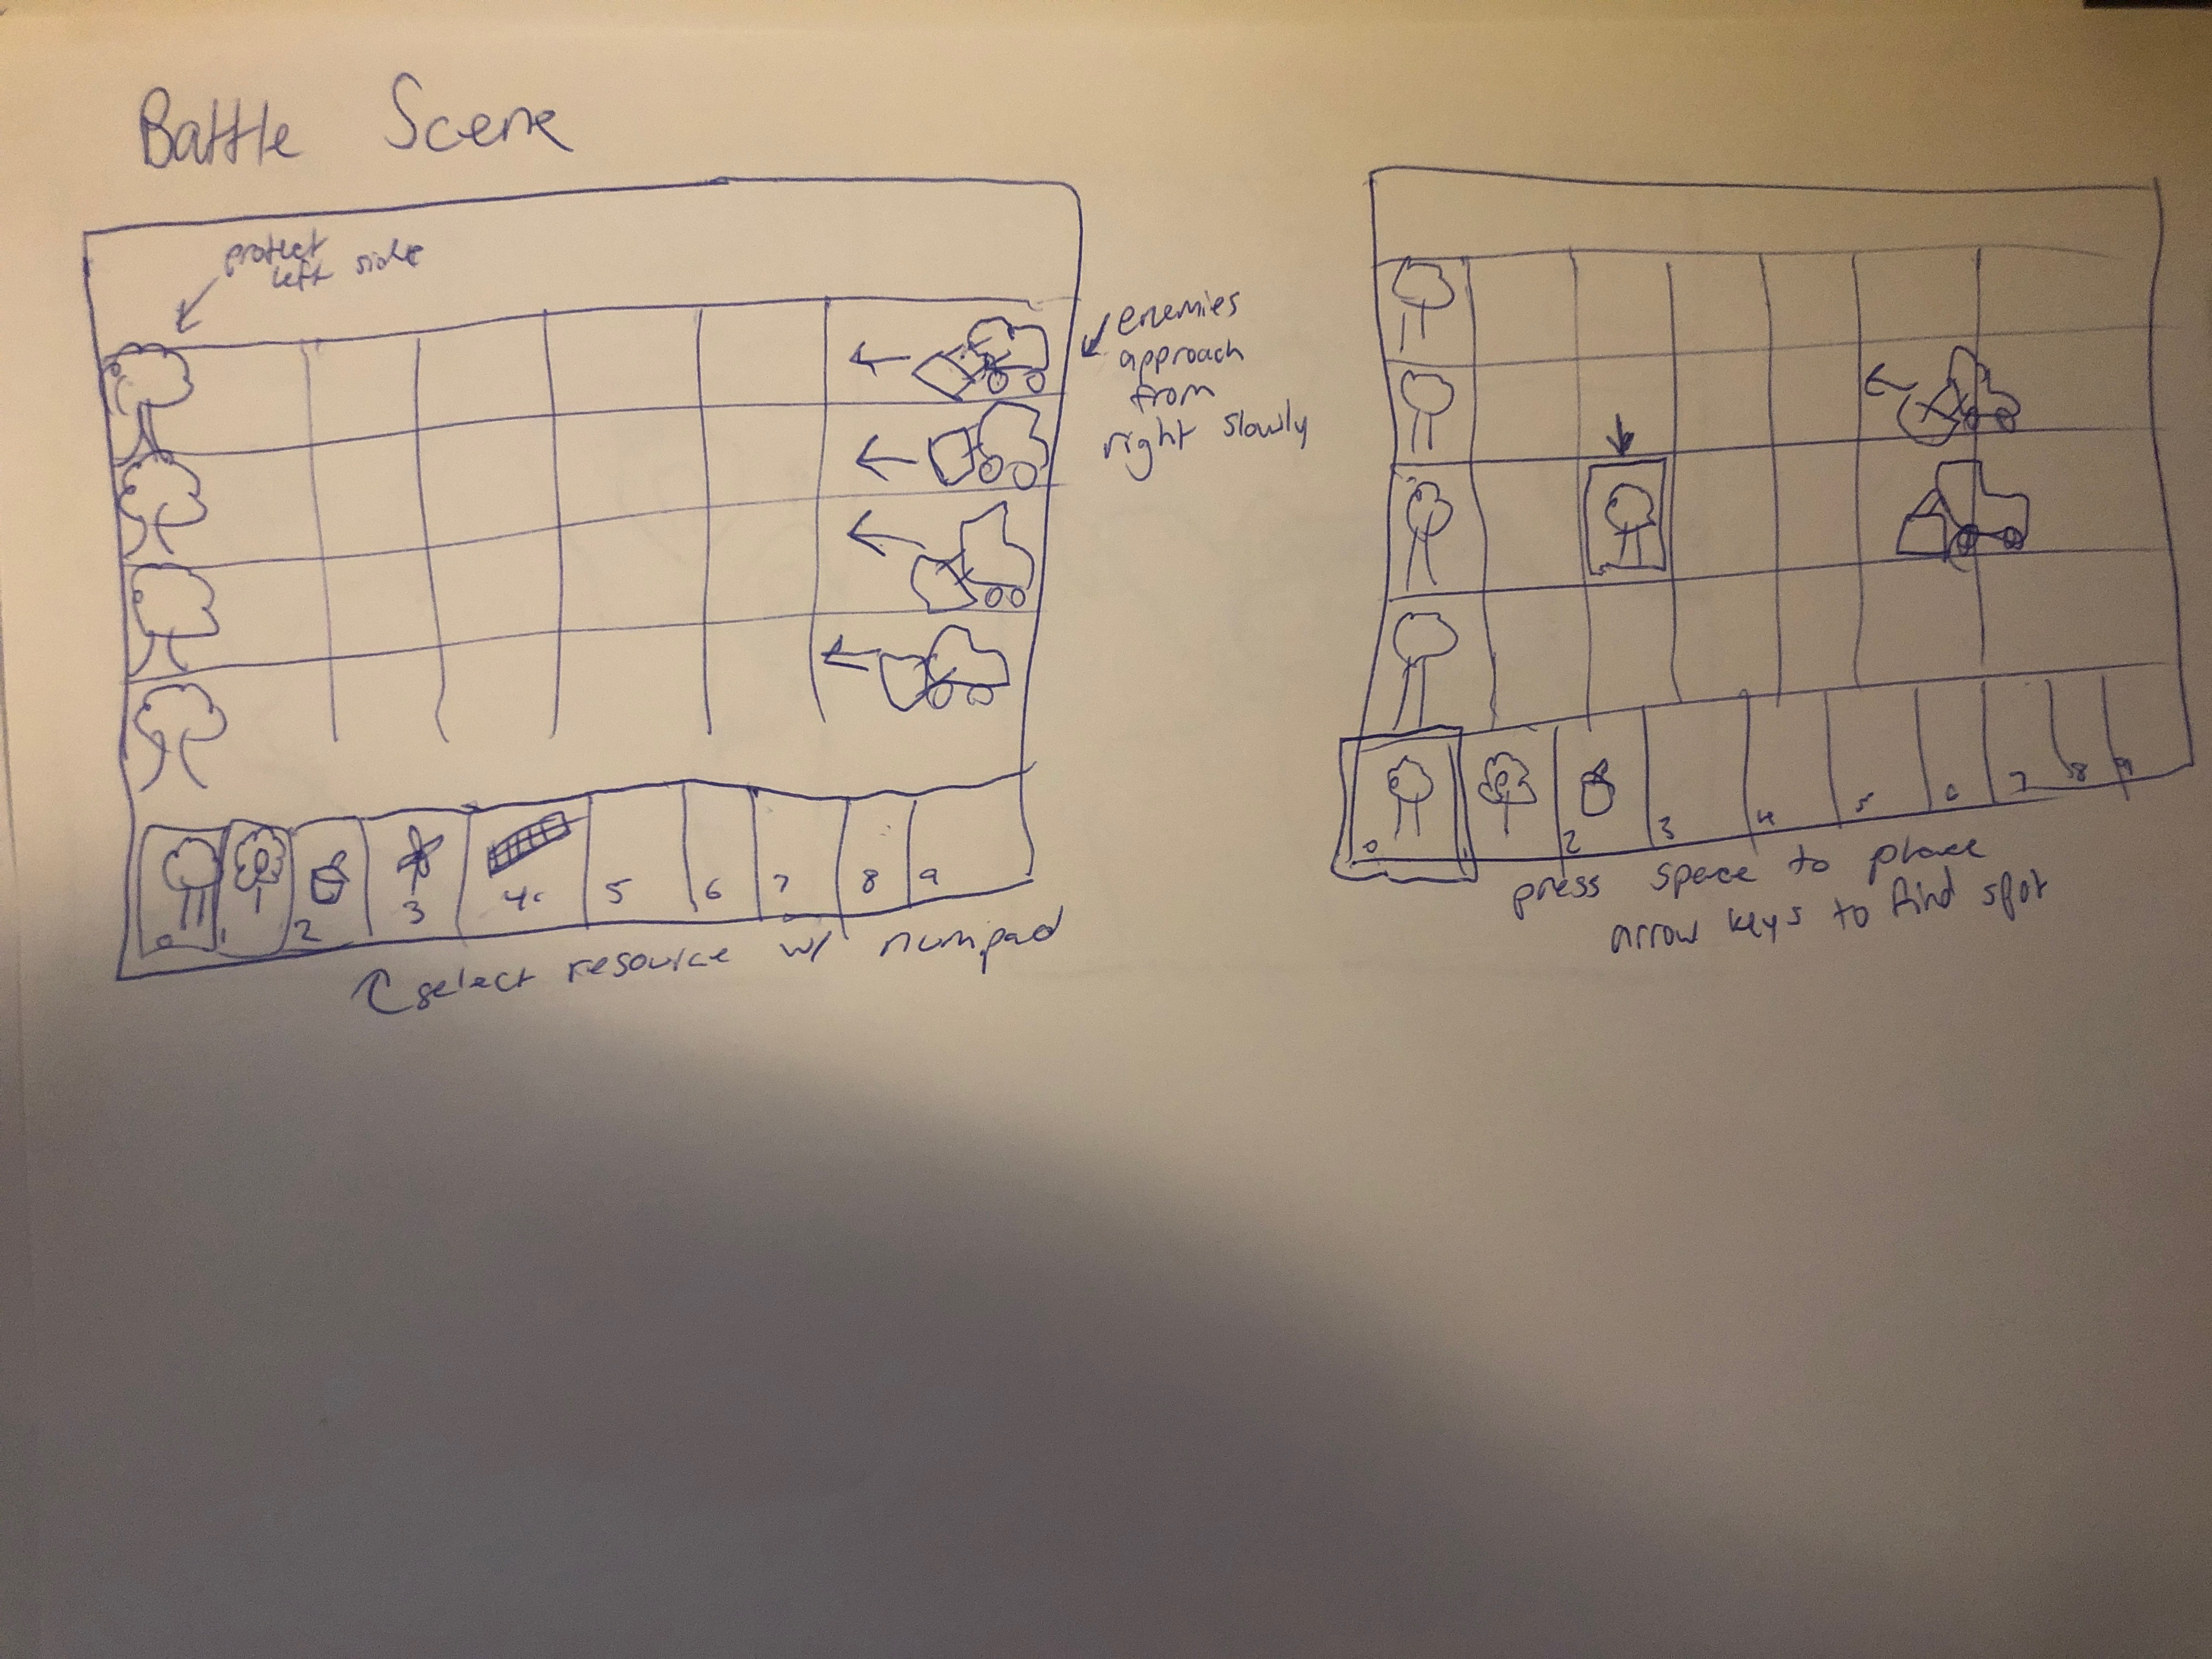 Battle Scene
protect
left side
enemies
approach
from
right slowly
0 1 2 3 4 5 6 7 8 9
select resource w/ numpad
0 2 3 4 5 6 7 8 9
press space to place
arrow keys to find spot